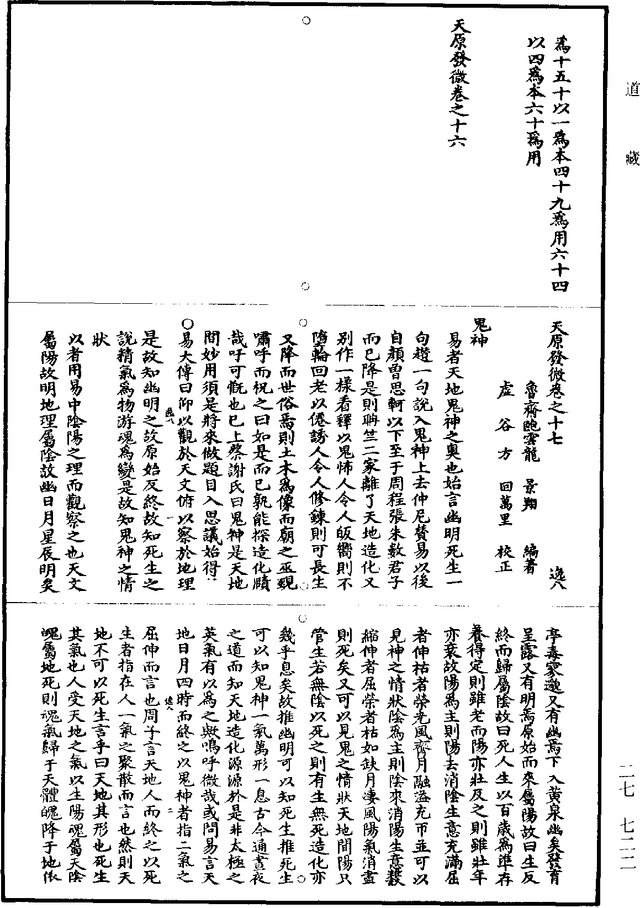 道藏
為十五十以一為本四十九為用六十四
以四為本六十為用
天原發微卷之十六
天原發微卷之十七 逸八
魯齋鮑雲龍 景翔 編著
虛谷方 回萬里 校正
鬼神
易者天地鬼神之奧也始言幽明死生一
句趲一句說入鬼神上去仲尼贊易以後
自顏曾思軻以下至于周程張朱數君子
而已降是則聃竺二家離了天地造化又
別作一樣看釋以鬼怖人令人皈嚮則不
墮輪回老以僊誘人令人修鍊則可長生
又降而世俗焉則土木為像而廟之巫覡
嘯呼而祝之曰如是而已孰能探造化賾
哉吁可慨也已上蔡謝氏曰鬼神是天地
間妙用須是將來做題目入思議始得
○易大傳曰仰以觀於天文俯以察於地理
是故知幽明之故原始反終故知死生之
說精氣為物游魂為變是故知鬼神之情
狀
以者用易中陰陽之理而觀察之也天文
屬陽故明地理屬陰故幽日月星辰明矣
亭毒寥邈又有幽焉下入黃泉幽矣發育
呈露又有明焉原始而來屬陽故曰生反
終而歸屬陰故曰死人生以百歲為準存
養得定則雖老而陽亦壯反之則雖壯年
亦衰故陽為主則陽去消陰生意充滿屈
者伸枯者榮光風霽月融溢充帀並可以
見神之情狀陰為主則陰來消陽生意
縮伸者屈榮者枯如缺月淒風陽氣消盡
則死矣又可以見鬼之情狀天地間陽只
管生若無陰以死之則有生無死造化亦
幾乎息矣故推幽明可以知死生推死生
可以知鬼神一氣萬形一息古今通晝夜
之道而知天地造化源源於是非太極之
英氣有以為之歟嗚呼微哉或問易言天
地日月四時而終之以鬼神者指二氣之
屈伸而言也周子言天地人而終之以死
生者指在人一氣之聚散而言也然則天
地不可以死生言乎曰天地其形也死生
其氣也人受天地之氣以生陽魂屬天陰
魄屬地死則魂氣歸于天體魄降于地依
二七 七二二